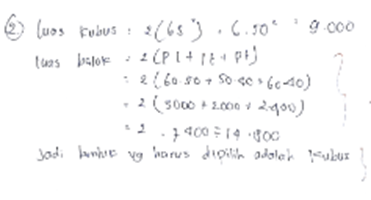 ② luas kubus : 2(6s²) . 6.50² = 9.000
luas balok : 2(Pl + lt + Pt)
= 2(60.50 + 50.40 + 60.40)
= 2(3000 + 2000 + 2400)
= 2 . 7400 = 14.800
Jadi bentuk yg harus dipilih adalah kubus